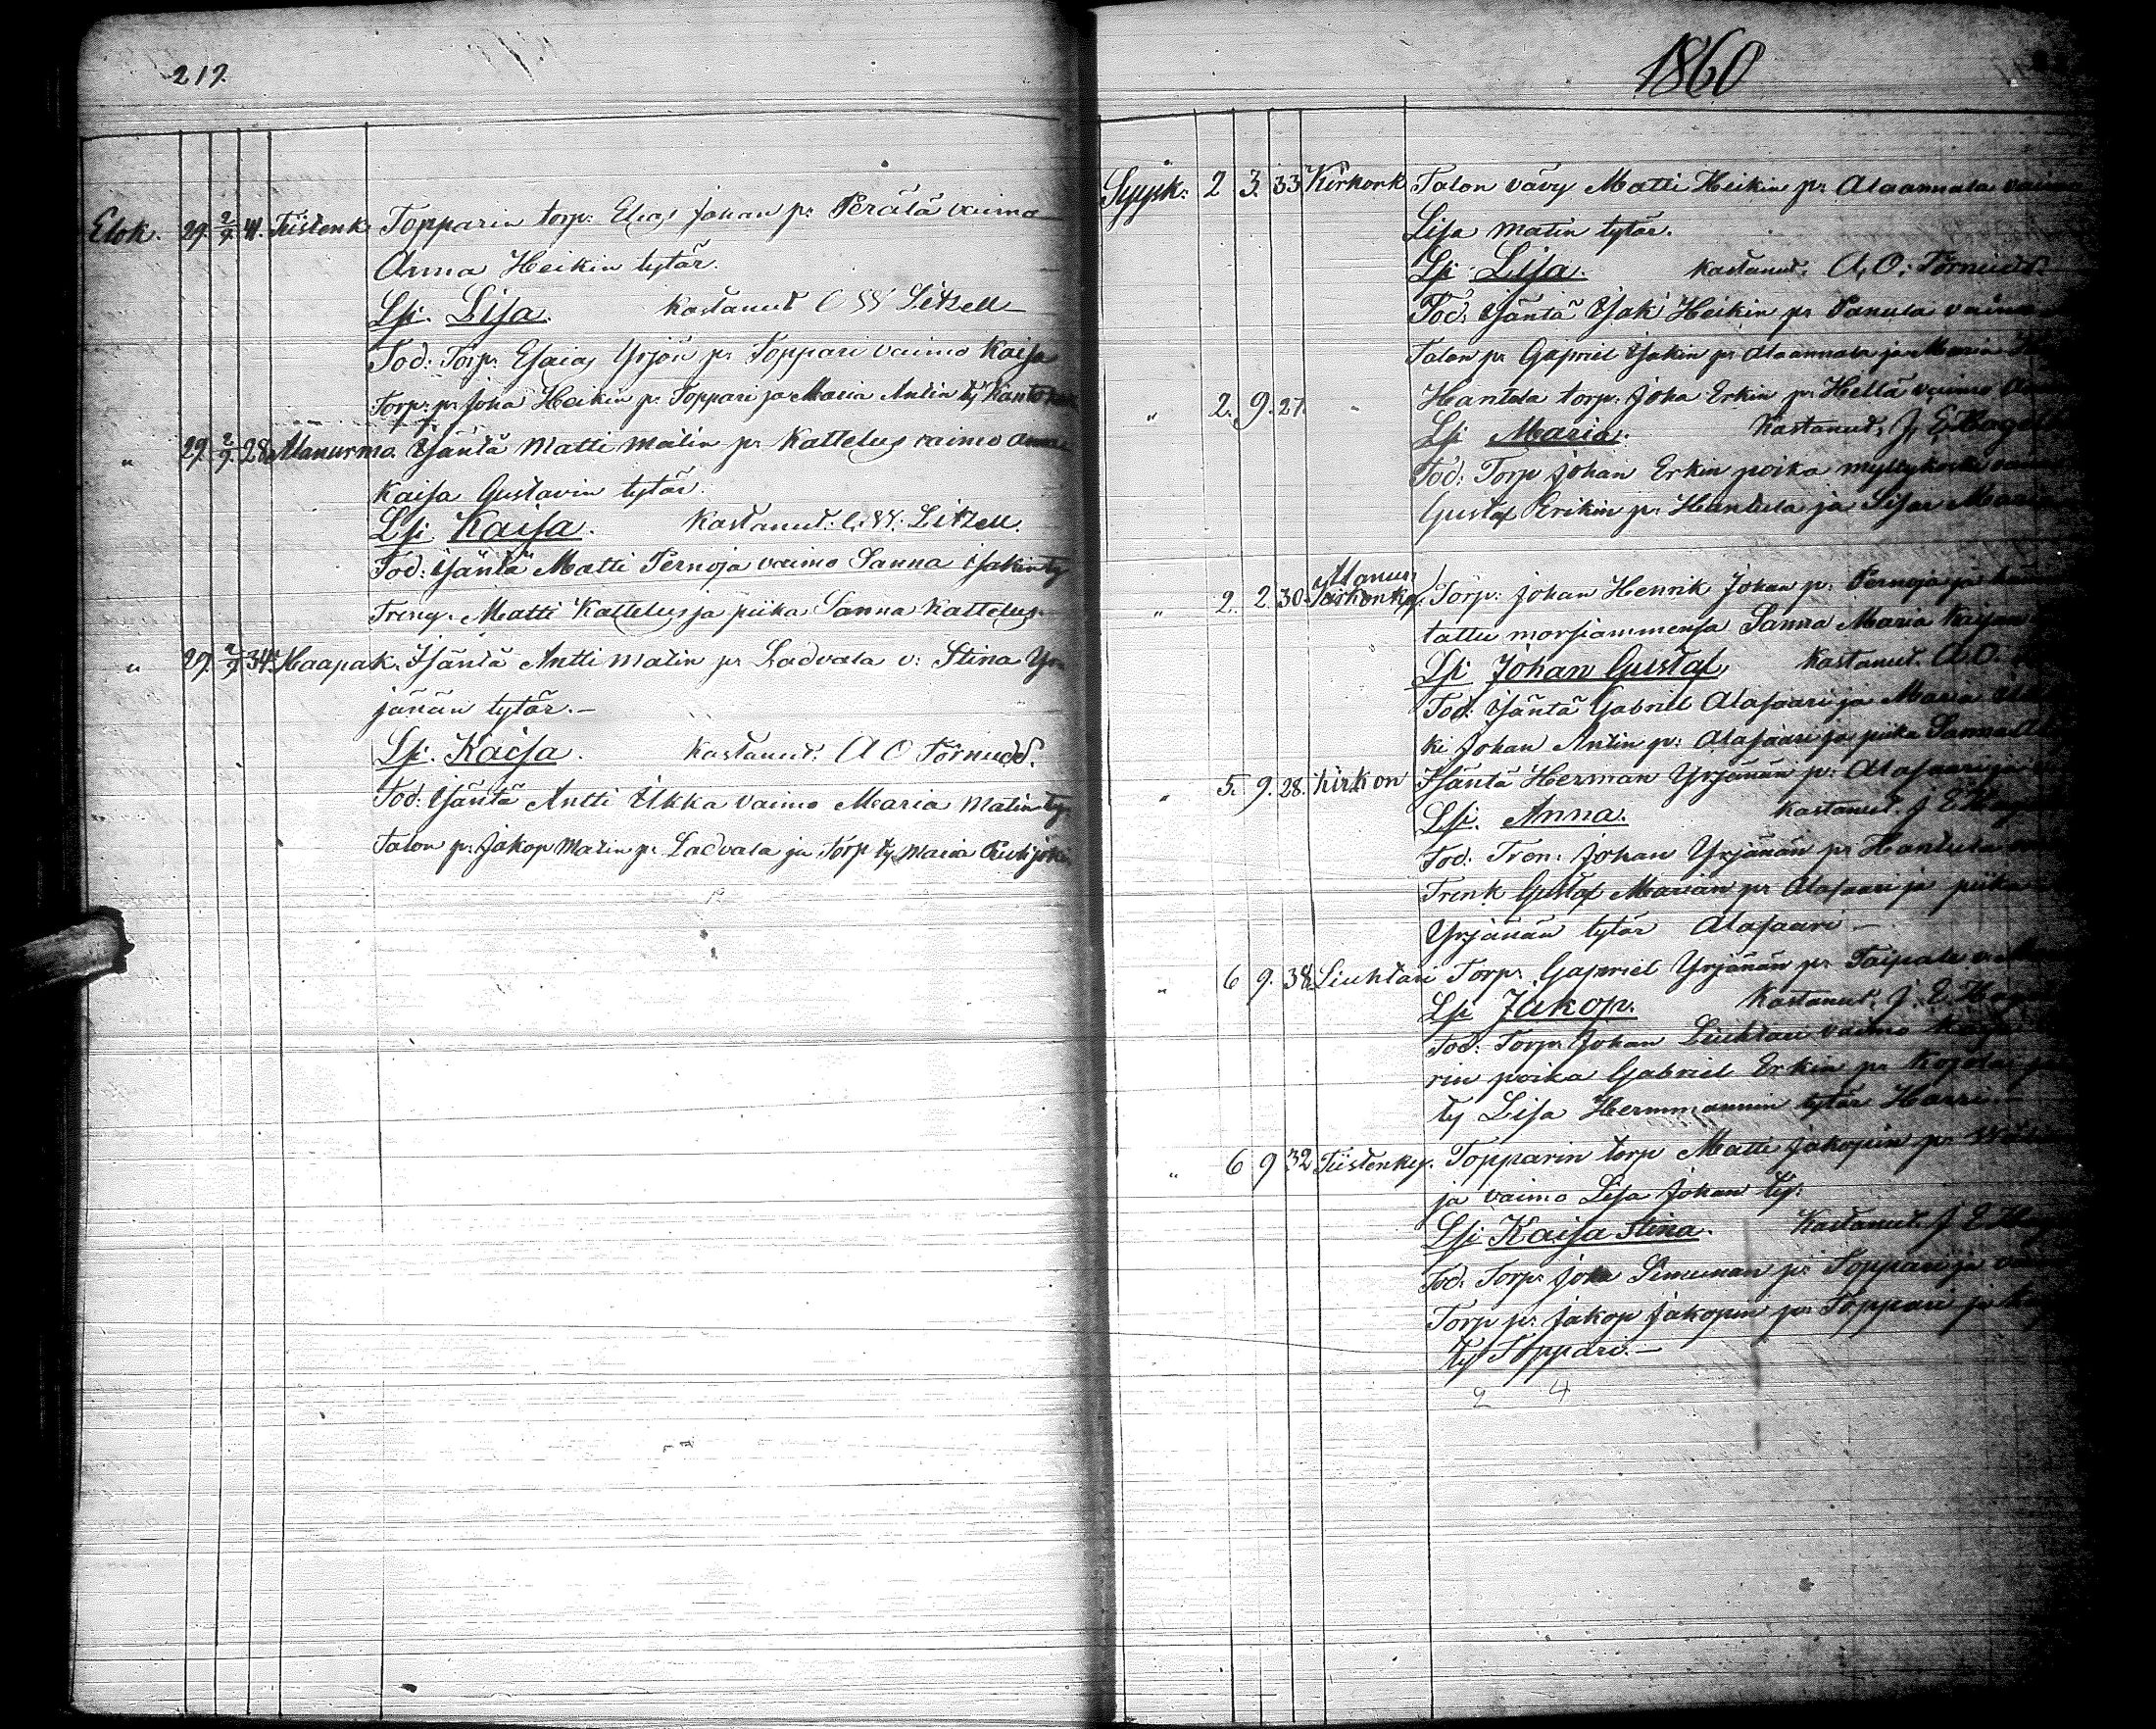 217.
Elok. 29. 2/9. 41. Tiistenk. Topparin torp: Elias Johan p: Perälä vaimo
Anna Heikin tytär.
Lsi. Lisa. Kastanut C W Litzell
Tod: Torp: Esaias Yrjön p: Toppari vaimo Kaisa
Torp: p: Joha Heikin p: Toppari ja Maria Antin ty
" 29. 2/9. 28. Alanurmo. Isäntä Matti Matin p: Kattelus vaimo Anna
Kaisa Gustavin tytär.
Lsi Kaisa. Kastanut: C. W. Litzell.
Tod: Isäntä Matti Pernoja vaimo Sanna Isakin ty
Treng. Matti Kattelus ja piika Sanna Kattelus.
" 29. 2/9. 34. Haapak. Isäntä Antti Matin p: Ladvala v: Stina Yr
jänän tytär.—
Lsi. Kaisa. Kastanut. A O Törnudd.
Tod: Isäntä Antti Ukka vaimo Maria Matin ty.
Talon p: Jakop Matin p: Ladvala ja Torp ty Maria
1860
Syysk. 2 3. 33 Kirkonk Talon vävy Matti Heikin p: Alaannala vaimo
Lisa Matin tytär.
Lsi Lisa. Kastanut. A. O. Törnudd.
Tod: Isäntä Isak Heikin p: Panula vaimo
Talon p: Gapriel Isakin p: Alaannala ja Maria
" 2. 9. 27. " Hantula torp: Joha Erkin p: Hellä vaimo
Lsi Maria. Kastanut, J. E. Hagel
Tod: Torp Johan Erkin poika Myllykoski
Gustaf Erikin p: Hantula ja Lisa Maria
" 2. 2. 30. Alanur, Torp: Johan Henrik Johan p: Pernoja ja
tattu morsiammensa Sanna Maria Kaisan
Lsi Johan Gustaf, Kastanut. A. O.
Tod: Isäntä Gabriel Alasaari ja Maria
ki Johan Antin p: Alasaari ja piika Sanna
" 5. 9. 28. Kirkon Isäntä Herman Yrjänän p: Alasaari
Lsi. Anna. Kastanut. J E
Tod: Tren: Johan Yrjänän p: Hantula
Trenk Gustaf Marian p: Alasaari ja piika
Yrjänän tytär Alasaari —
" 6 9. 38. Liuhtari Torp: Gapriel Yrjänän p: Taipale v:
Lsi Jakop. Kastanut. J. E.
Tod: Torp: Johan Liuhtari vaimo
rin poika Gabriel Erkin p: Kojola
ty Lisa Hermmannin tytär Harri—
" 6 9 32 Tiistenky. Topparin torp Matti Jakopin p:
ja vaimo Lisa Johan ty:
Lsi Kaisa Stina. Kastanut. J E
Tod: Torp: Joha Simunan p: Toppari ja
Torp p: Jakop Jakopin p: Toppari ja
ty Toppari.—
2 4